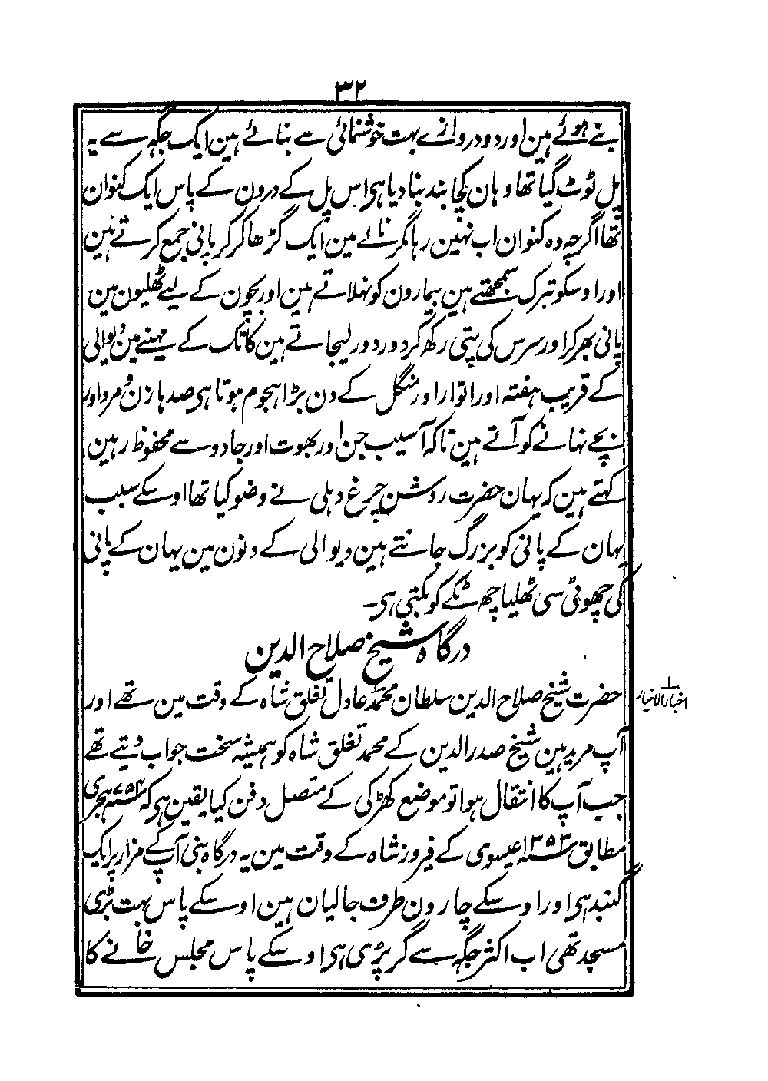 ۳۲
بنے ہوئے ہین اور دو دروازے بہت خوشنمائی سے بنائے ہین ایک جگہ سے یہ
پل ٹوٹ گیا تھا وہان کچا بند بنا دیا ہی اس پل کے درون کے پاس ایک کنوان
تھا اگرچہ وہ کنوان اب نہین رہا مگر نالے مین ایک گڑھا کر کر پانی جمع کرتے ہین
اور اوسکو تبرک سمجھتے ہین بیمارون کو نہلاتے ہین اور بچون کے لیے ٹھلیون مین
پانی بھر کر اور سرس کی پتی رکھ کر دور دور لیجاتے ہین کاتک کے مہینے مین دیوالی
کے قریب ہفتہ اور اتوار اور منگل کے دن بڑا ہجوم ہوتا ہی صدہا زن و مرد اور
بچے نہانے کو آتے ہین تاکہ آسیب جن اور بھوت اور جادو سے محفوظ رہین
کہتے ہین کہ یہان حضرت روشن چراغ دہلی نے وضو کیا تھا اوسکے سبب
یہان کے پانی کو بزرگ جانتے ہین دیوالی کے دنون مین یہان کے پانی
کی چھوٹی سی ٹھلیا چھ ٹکے کو بکتی ہی۔
درگاہ شیخ صلاح الدین
حضرت شیخ صلاح الدین سلطان محمد عادل تغلق شاہ کے وقت مین تھے اور
۱ اخبار الاخیار
آپ مرید ہین شیخ صدر الدین کے محمد تغلق شاہ کو ہمیشہ سخت جواب دیتے تھے
جب آپ کا انتقال ہوا تو موضع کھڑکی کے متصل دفن کیا یقین ہی کہ ۷۵۴ ہجری
مطابق ۱۳۵۳ عیسوی کے فیروز شاہ کے وقت مین یہ درگاہ بنی آپ کے مزار پر ایک
گنبد ہی اور اوسکے چارون طرف جالیان ہین اوسکے پاس بہت بڑی
مسجد تھی اب اکثر جگہ سے گر پڑی ہی اوسکے پاس مجلس خانے کا